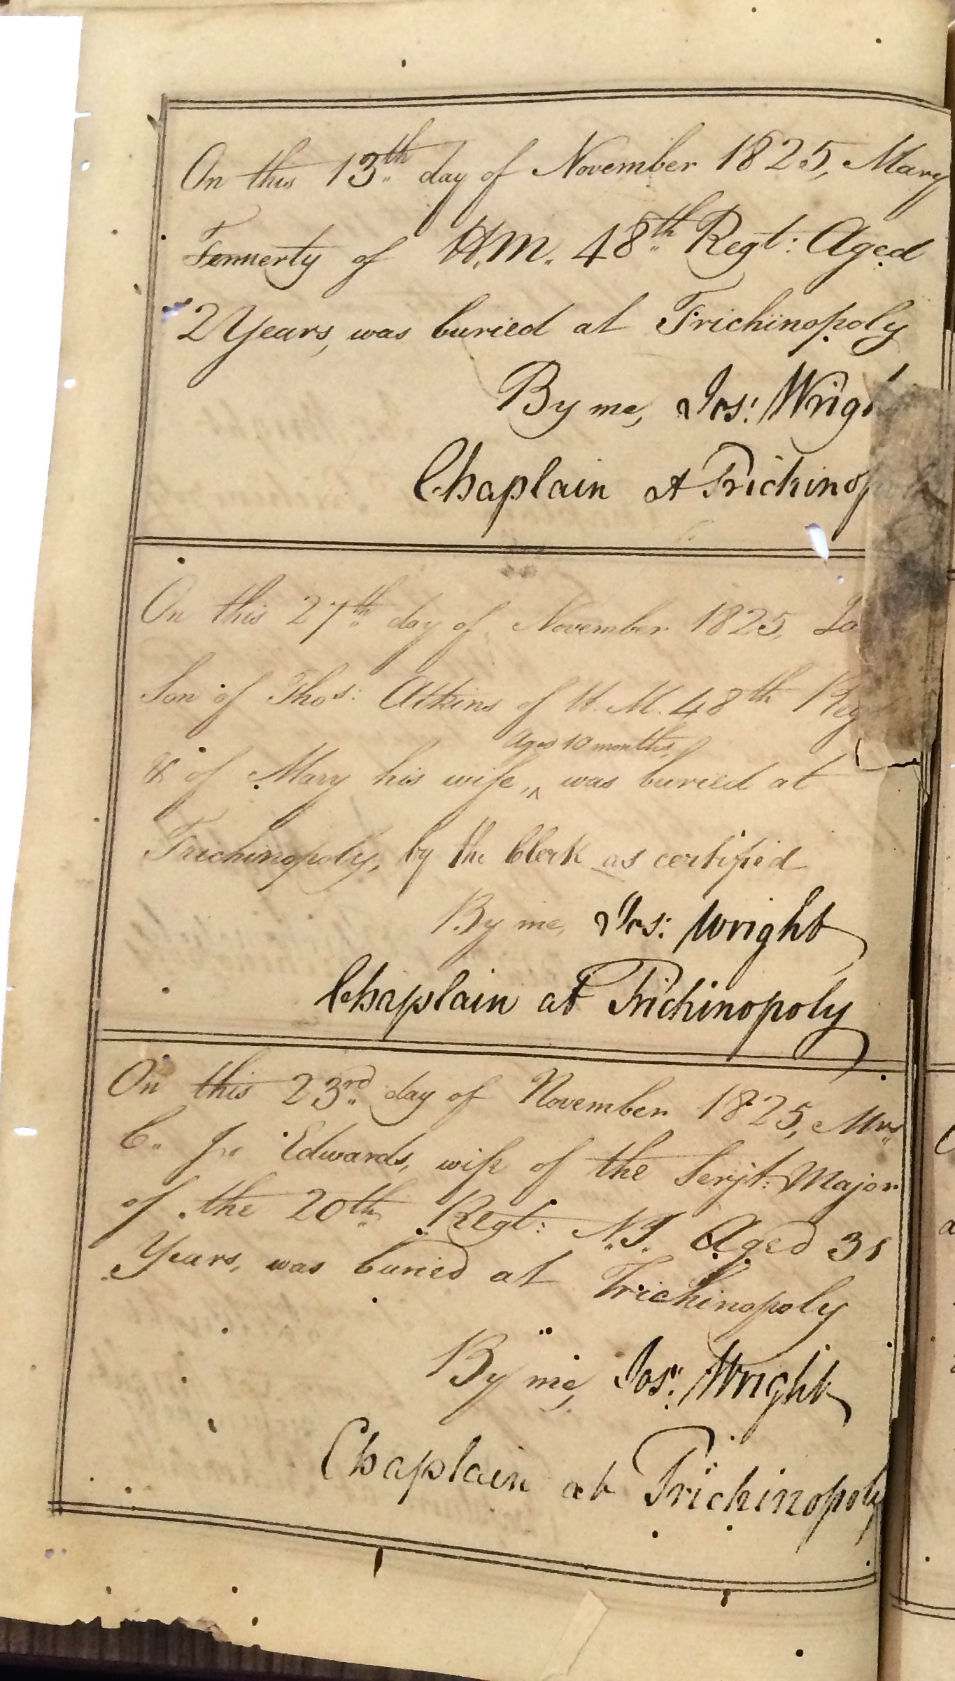 On this 13th day of November 1825, Mary
Fennerty of H.M. 48th Regt: Aged
2 Years, was buried at Trichinopoly
By me, Jos: Wrigh
Chaplain at Trichinop
On this 27th day of November 1825, Jo
Son of Thos: Atkins of H.M. 48th Reg
Aged 10 months
& of Mary his wife, ^ was buried at
Trichinopoly, by the Clerk as certified
By me, Jos: Wright
Chaplain at Trichinopoly
On this 23rd day of November 1825, Mrs
C. J. Edwards, wife of the Serjt: Major
of the 20th Regt: N.I. Aged 31
Years, was buried at Trichinopoly
By me, Jos: Wright
Chaplain at Trichinopoly